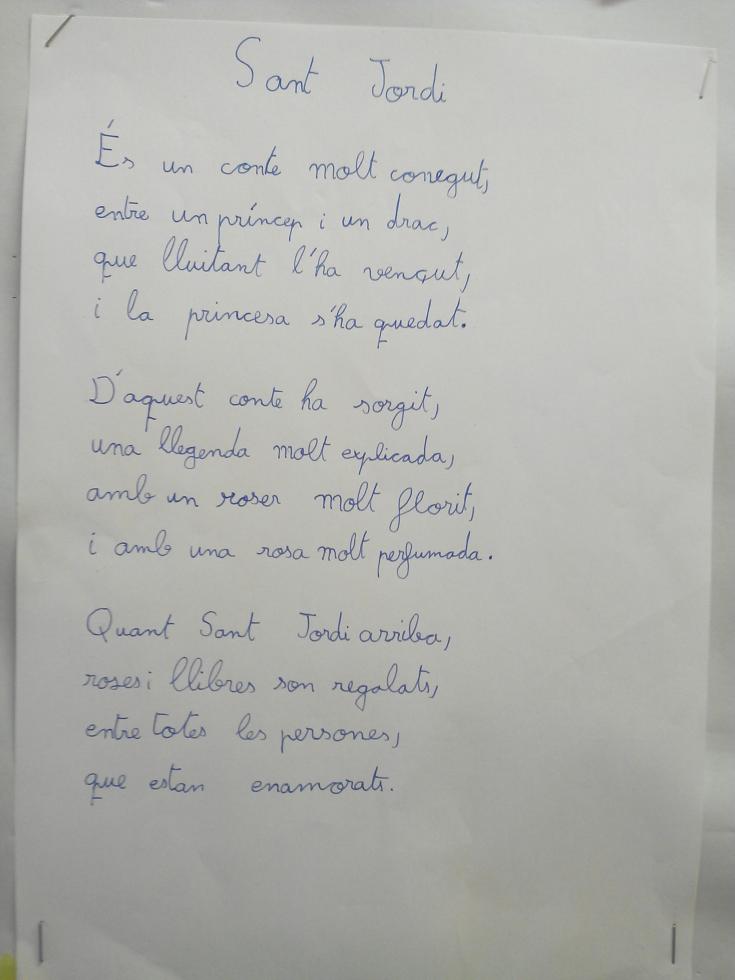 Sant Jordi
És un conte molt conegut,
entre un príncep i un drac,
que lluitant l'ha vençut,
i la princesa s'ha quedat.
D'aquest conte ha sorgit,
una llegenda molt explicada,
amb un roser molt florit,
i amb una rosa molt perfumada.
Quant Sant Jordi arriba,
roses i llibres son regalats,
entre totes les persones,
que estan enamorats.